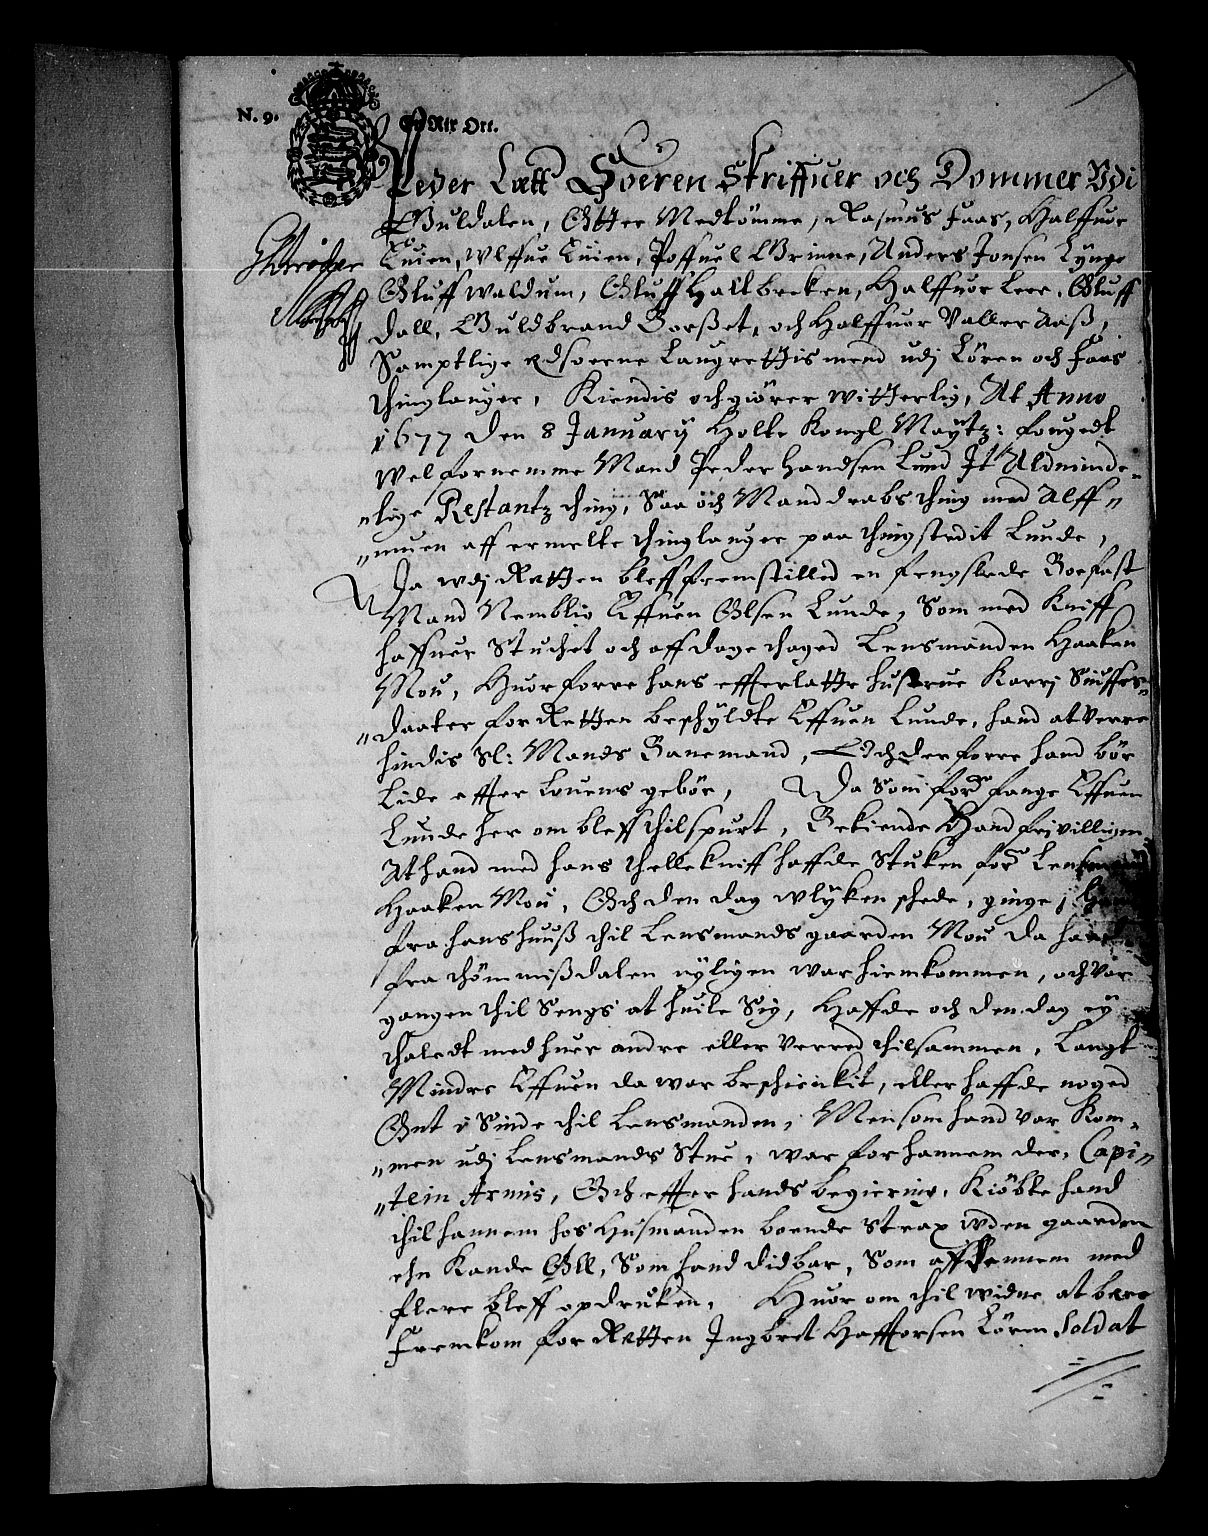 N. 9.
En Rix Ort.
Peder Lætt Soeren Skriffuer och Dommer Vdi
Guldalen, Otte Medtömme, Rasmus Faas, Halffuor
Euien, Vlffue Euien, Poffuel Grinne, Anders Jonsen Lynge
Oluff Waldum, Oluff Haltbrecken, Halffuor Leer, Oluff
Dall, Guldbrand Gorßet, och Halffuor Valler Aaß,
Samptlige Edsoerne Laugrettis mend udj Lören och Faas
thinglauger, Kiendis och giörer witterlig, At Anno
1677 den 8 January Holte Kongl Maytz: fougedt
Welfornemme Mand Peder Handsen Lund It Aldminde=
=lige Restantz thing, Saa och Manddrabs thing med Alff=
=muen aff ermelte thinglauger paa thingstedit Lunde,
Da wdj Retten bleff fremstilled en fengslede Boefast
Mand Nemblig Effuen Olsen Lunde, Som med Kniff
haffuer Stuchet och aff dage taged Lensmanden Haaken
Mou, Huorforre hans effterlatte hustrue Karrj Siuffers
daatter for Retten beschyldte Effuen Lunde, hand at verre
hindis Sl: Mands Banemand, Och derforre hand bör
Lide effter Louens gebör, Da Som ford fange Effuen
Lunde her om bleff thilspurt, Bekiende Hand frivilligen
At hand med hans thellekniff haffde Stuken ford
Haaken Mou, Och den dag wlyken schede, ginge
fra hans huuß thil Lensmands gaarden Mou da
fra thömmißdalen nyligen war hiemkommen, och var
gangen thil Sengs at huile Sig, Haffde och den dag ey
thaledt med huer andre eller verred thilsammen, Langt
Mindre Effuen da war beschienkit, eller haffde noged
Ont i Sinde thil Lensmanden, Men som hand var Kom=
=men udj Lensmands Stue, war for hannem der, Capi=
=tein Armis, Och effter hands begiering, Kiöbte hand
thil hannem hos Husmanden boende strax wden gaarden
ehn Kande Öll, Som hand did bar, Som aff dennem med
flere bleff opdruken, Huor om thil widne at bære
Fremkom for Retten Ingbret Haffforsen Lören Soldat